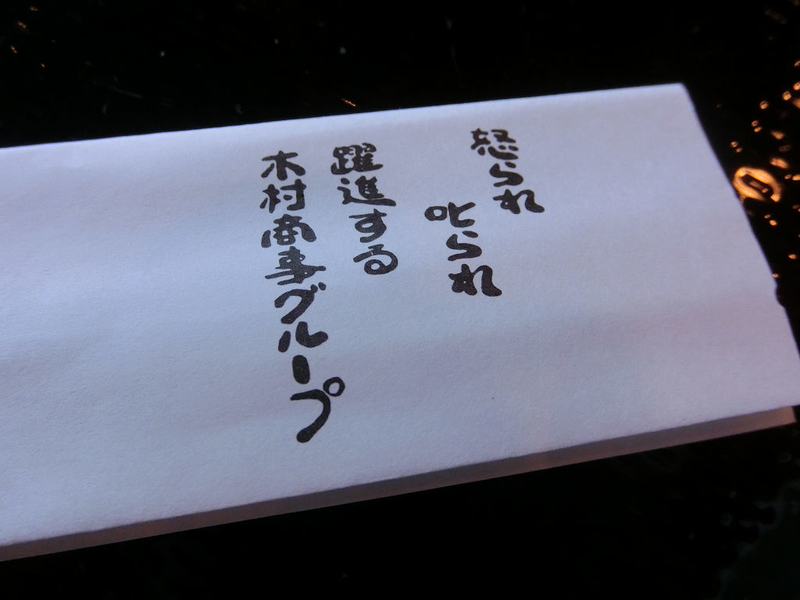 怒られ
叱られ
躍進する
木村商事グループ